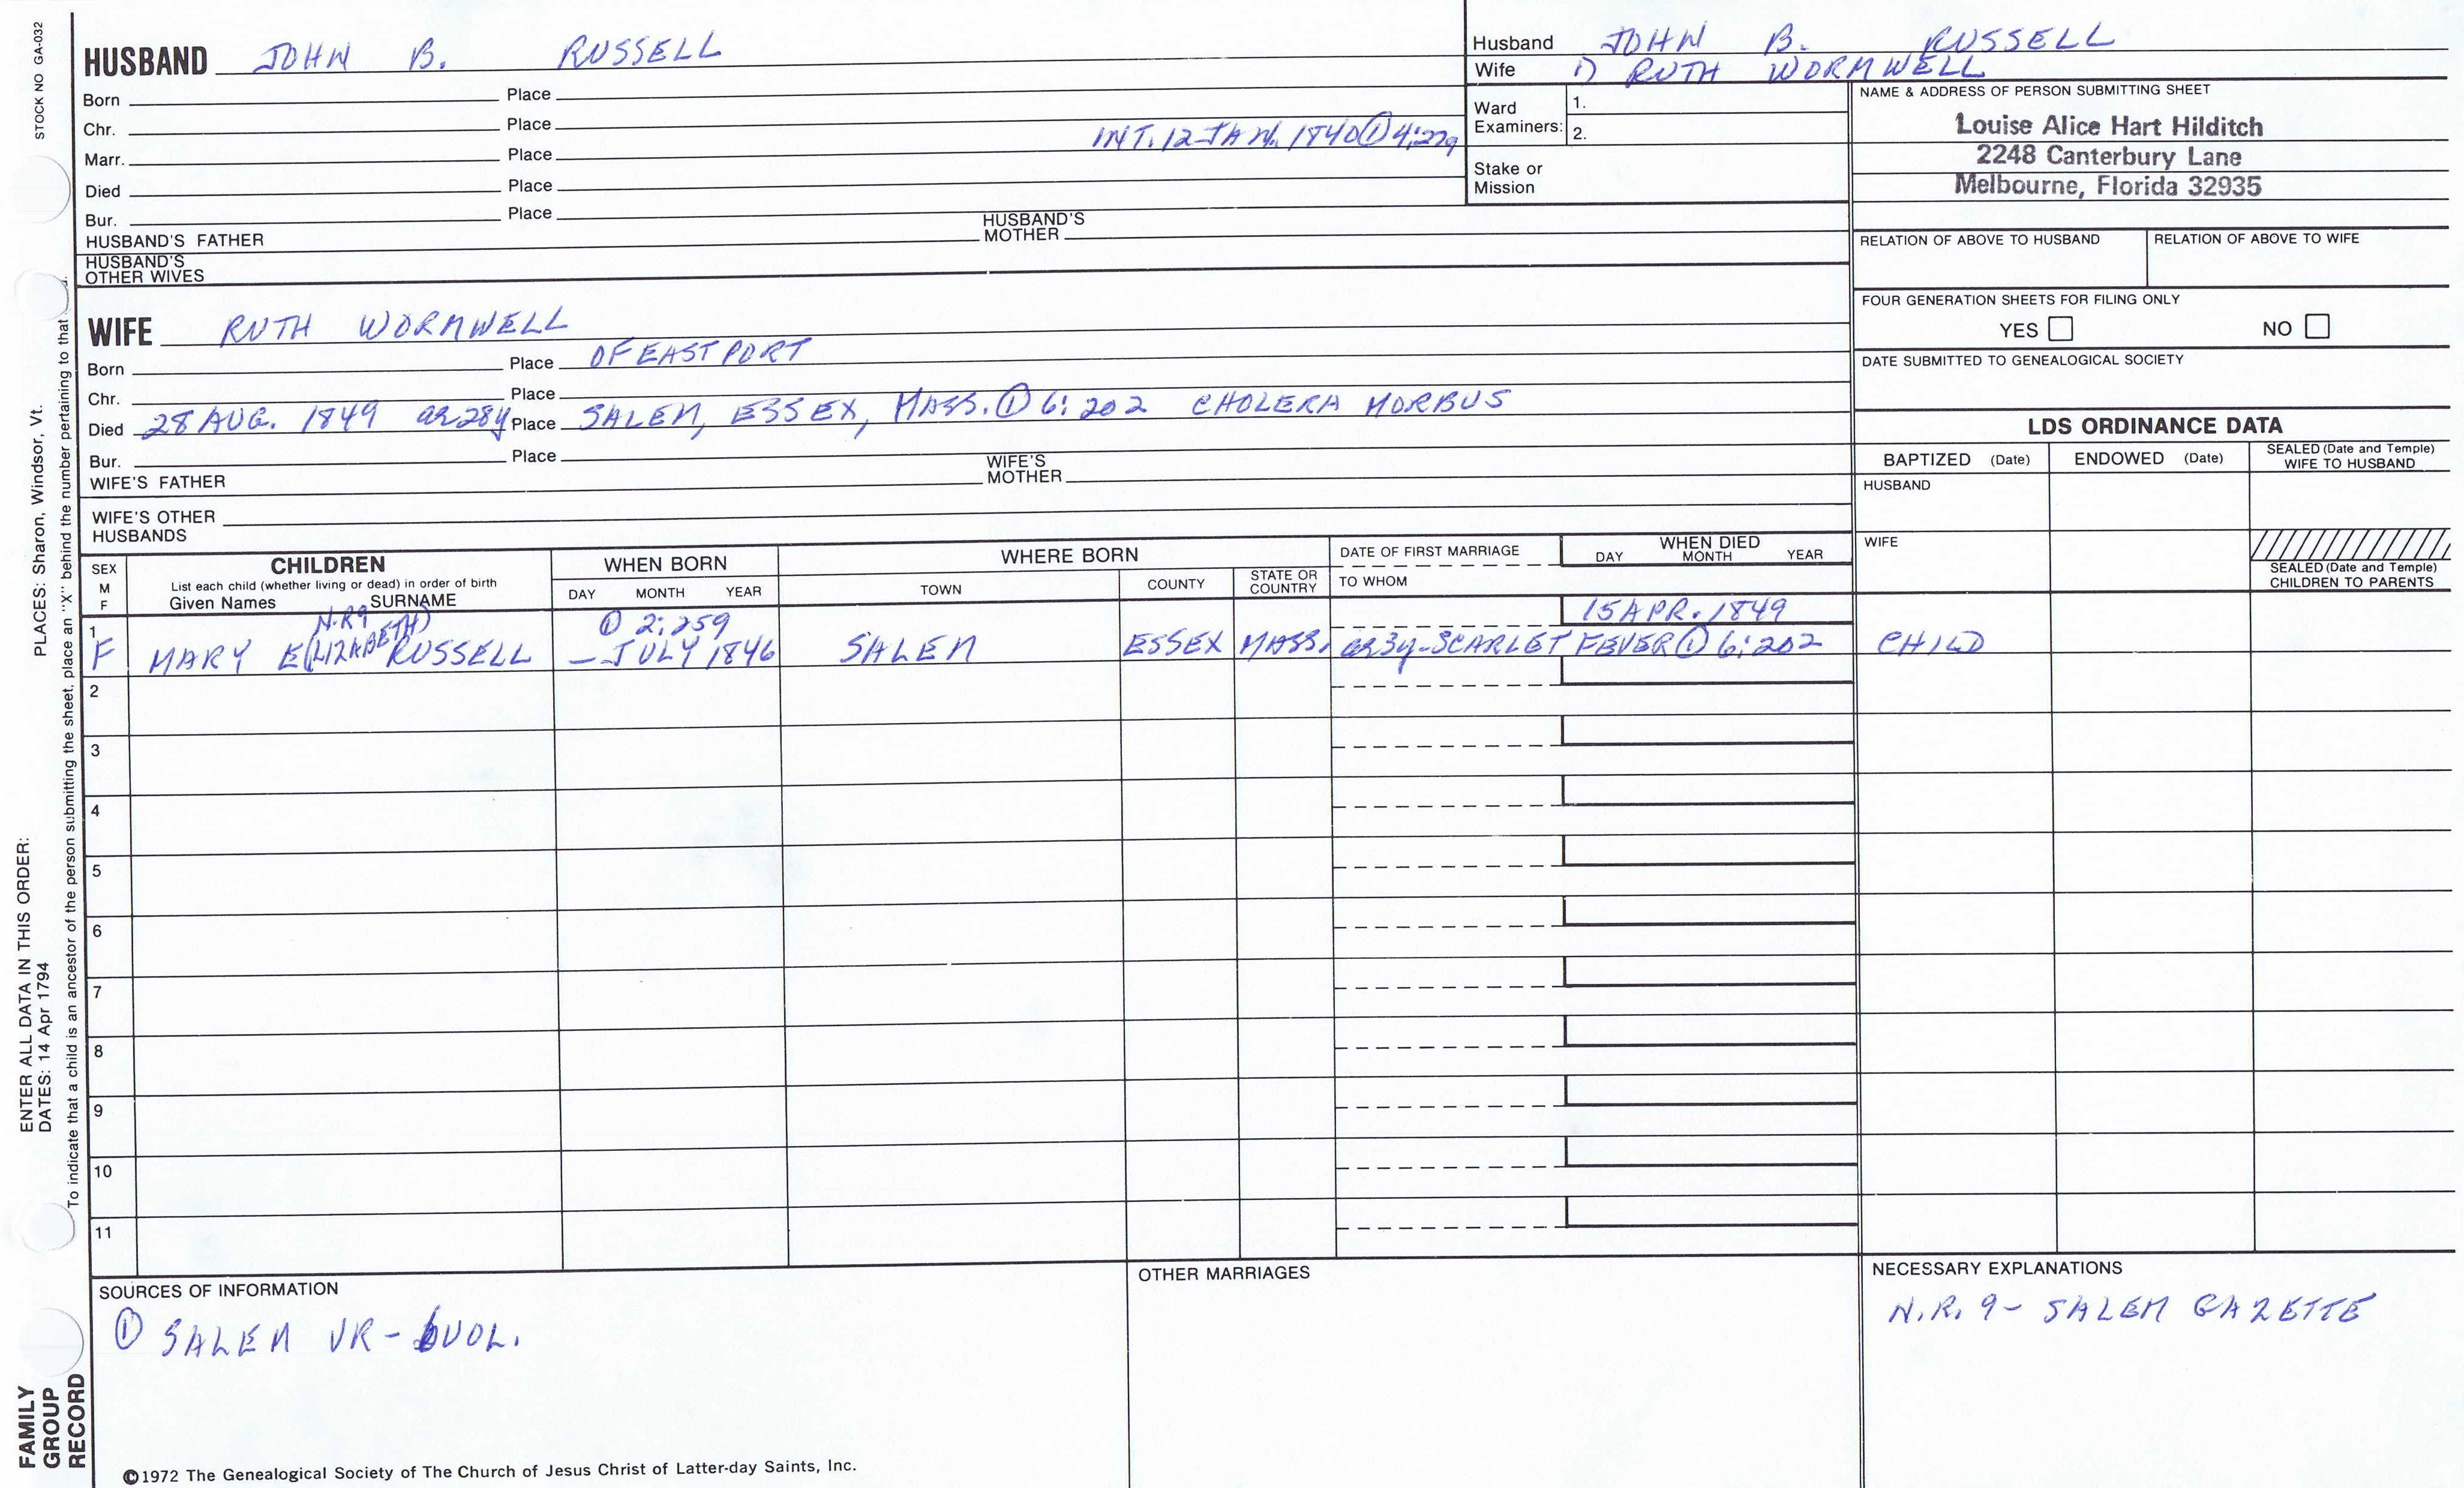 STOCK NO GA-032
HUSBAND JOHN B. RUSSELL
Born Place
Chr. Place
Marr. Place INT. 12 JAN. 1840 ① 4:279
Died Place
Bur. Place
HUSBAND'S FATHER HUSBAND'S MOTHER
HUSBAND'S OTHER WIVES
Husband JOHN B. RUSSELL
Wife 1) RUTH WORMWELL
Ward Examiners: 1.
2.
Stake or Mission
NAME & ADDRESS OF PERSON SUBMITTING SHEET
Louise Alice Hart Hilditch
2248 Canterbury Lane
Melbourne, Florida 32935
RELATION OF ABOVE TO HUSBAND RELATION OF ABOVE TO WIFE
FOUR GENERATION SHEETS FOR FILING ONLY
YES NO
DATE SUBMITTED TO GENEALOGICAL SOCIETY
WIFE RUTH WORMWELL
Born Place OF EASTPORT
Chr. Place
Died 28 AUG. 1849 ae 28y Place SALEM, ESSEX, MASS. ① 6:202 CHOLERA MORBUS
Bur. Place
WIFE'S FATHER WIFE'S MOTHER
WIFE'S OTHER HUSBANDS
LDS ORDINANCE DATA
BAPTIZED (Date) ENDOWED (Date) SEALED (Date and Temple) WIFE TO HUSBAND
HUSBAND
WIFE
SEALED (Date and Temple) CHILDREN TO PARENTS
SEX M F
CHILDREN
List each child (whether living or dead) in order of birth
Given Names SURNAME
WHEN BORN
DAY MONTH YEAR
WHERE BORN
TOWN COUNTY STATE OR COUNTRY
DATE OF FIRST MARRIAGE
TO WHOM
WHEN DIED
DAY MONTH YEAR
N.R9 ① 2:259 15 APR. 1849
1 F MARY E(LIZABETH) RUSSELL – JULY 1846 SALEM ESSEX MASS. ae 3y - SCARLET FEVER ① 6:202 CHILD
2
3
4
5
6
7
8
9
10
11
SOURCES OF INFORMATION
① SALEM VR - 6 VOL.
OTHER MARRIAGES
NECESSARY EXPLANATIONS
N.R. 9 - SALEM GAZETTE
©1972 The Genealogical Society of The Church of Jesus Christ of Latter-day Saints, Inc.
FAMILY GROUP RECORD
ENTER ALL DATA IN THIS ORDER:
DATES: 14 Apr 1794
PLACES: Sharon, Windsor, Vt.
To indicate that a child is an ancestor of the person submitting the sheet, place an "X" behind the number pertaining to that